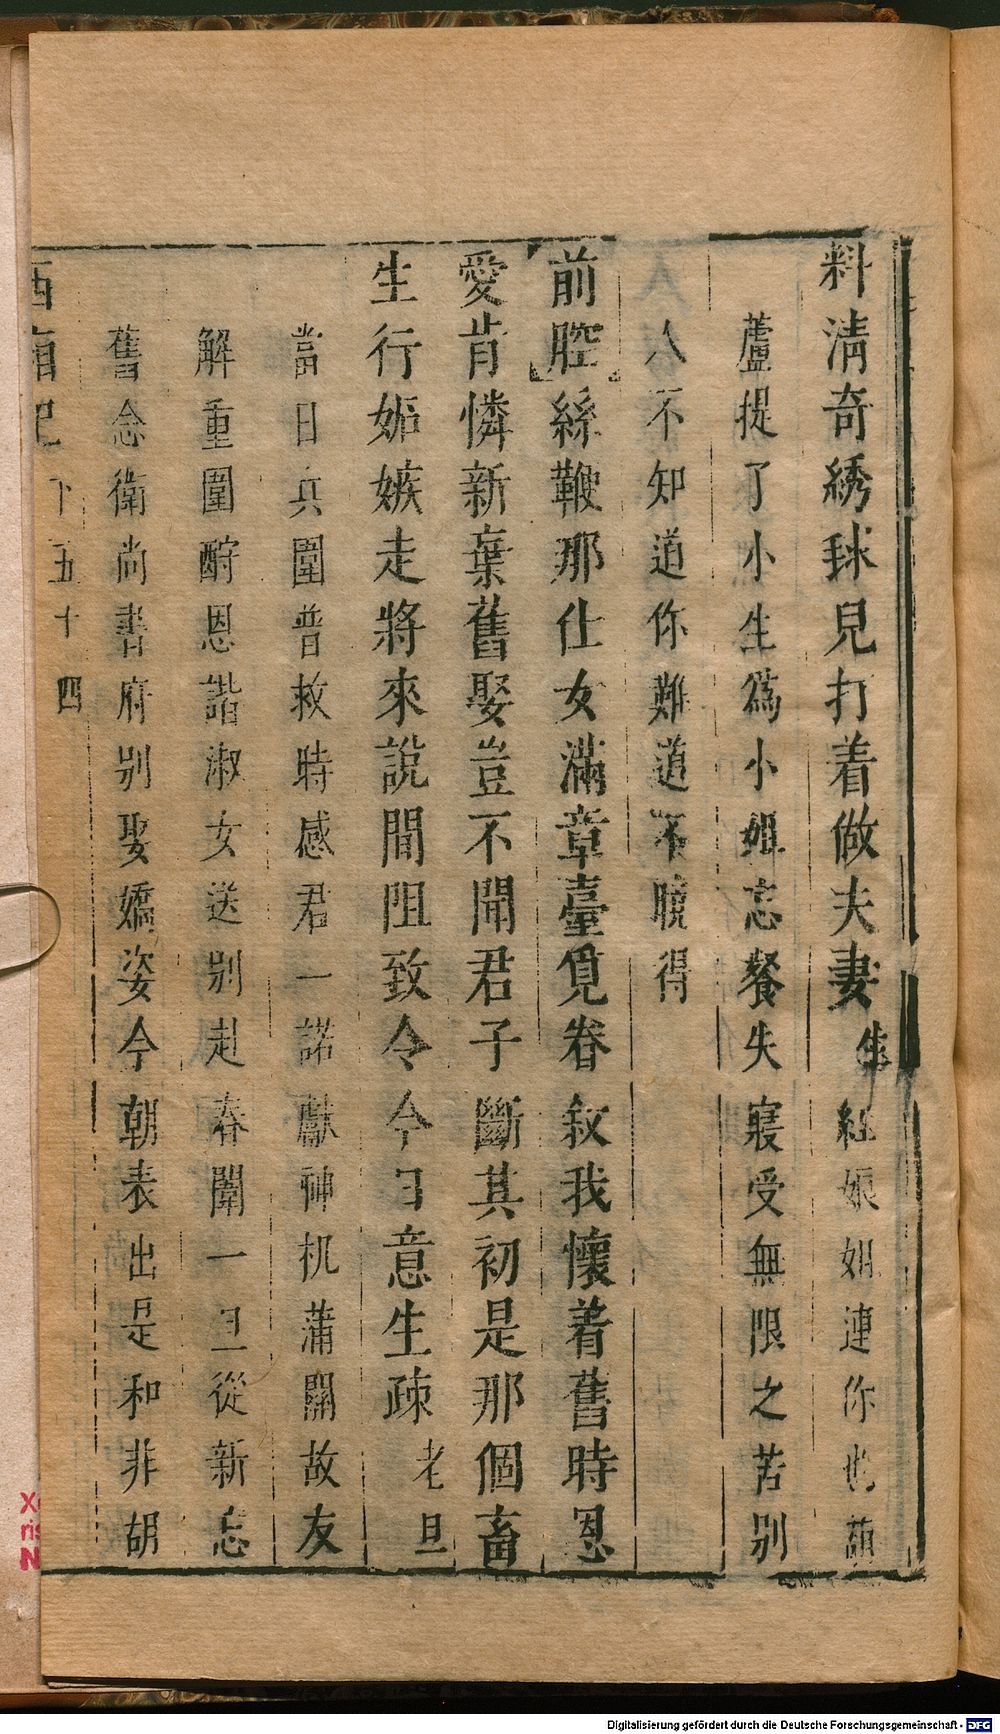 料淸奇綉球兒打着做夫妻生紅娘姐連你也葫
蘆提了小生爲小姐忘餐失寢受無限之苦别
人不知道你難道不曉得
前腔絲鞭那仕女滿章臺覓眷叙我懷着舊時恩
愛肯憐新棄舊娶豈不聞君子斷其初是那個畜
生行妬嫉走將來說間阻致令今日意生疎老旦
當日兵圍普救時感君一諾獻神机蒲關故友
解重圍酧恩諧淑女送别赴春闈一旦從新忘
舊念衛尚書府别娶嬌姿今朝表出是和非胡
西廂記下五十四
Digitalisierung gefördert durch die Deutsche Forschungsgemeinschaft - DFG